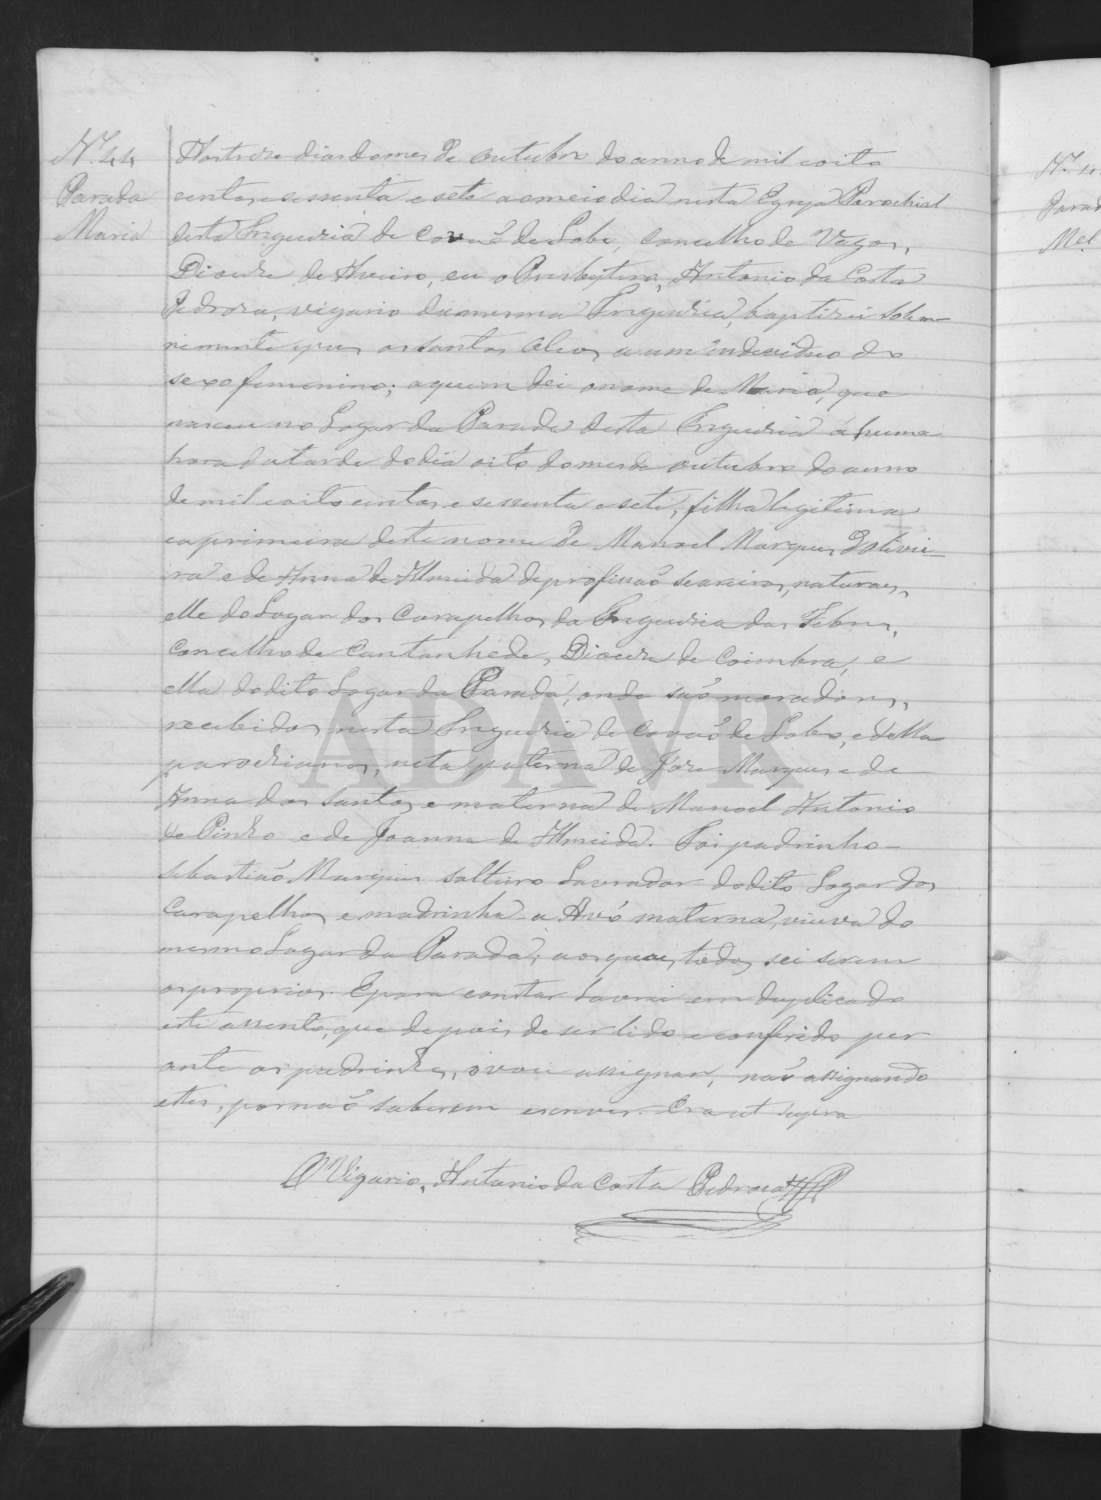 N.º 44
Parada
Maria
Aos treze dias do mes de outubro do anno de mil e oito
centos e sessenta e sete ao meio dia nesta Egreja Parochial
desta Freguezia de Covão de Lobo, Concelho de Vagos,
Diocese de Aveiro, eu o Presbytero, Antonio da Costa
Pedroza, vigario da mesma Freguezia, baptizei solem-
nemente e puz os santos oleos a um individuo do
sexo femenino; a quem dei o nome de Maria, que
nasceu no Lugar da Parada desta Freguezia á huma
hora da tarde do dia oito do mes de outubro do anno
de mil e oito centos e sessenta e sete, filha legitima
e a primeira deste nome de Manoel Marques d'Olivei-
ra e de Anna de Almeida de profissão seareiros, naturaes,
elle do Lugar dos Carapelhos da Freguezia das Febres,
Concelho de Cantanhede, Diocese de Coimbra, e
ella do dito Lugar da Parada, onde são moradores,
recebidos nesta Freguezia de Covão de Lobo, e della
parochianos, neta paterna de Joze Marques e de
Anna dos Santos e materna de Manoel Antonio
de Pinho e de Joanna de Almeida. Foi padrinho
Sebastião Marques solteiro Lavrador do dito Lugar dos
Carapelhos e madrinha a Avó materna, viuva do
mesmo Lugar da Parada, aos quaes todos sei serem
os proprios. E para constar lavrei em duplicado
este assento, que depois de ser lido e conferido per
ante os padrinhos, o vou assignar, não assignando
elles, por não saberem escrever. Era ut supra
O Vigario, Antonio da Costa Pedroza
N.º
Parad
Mel
ADAVR